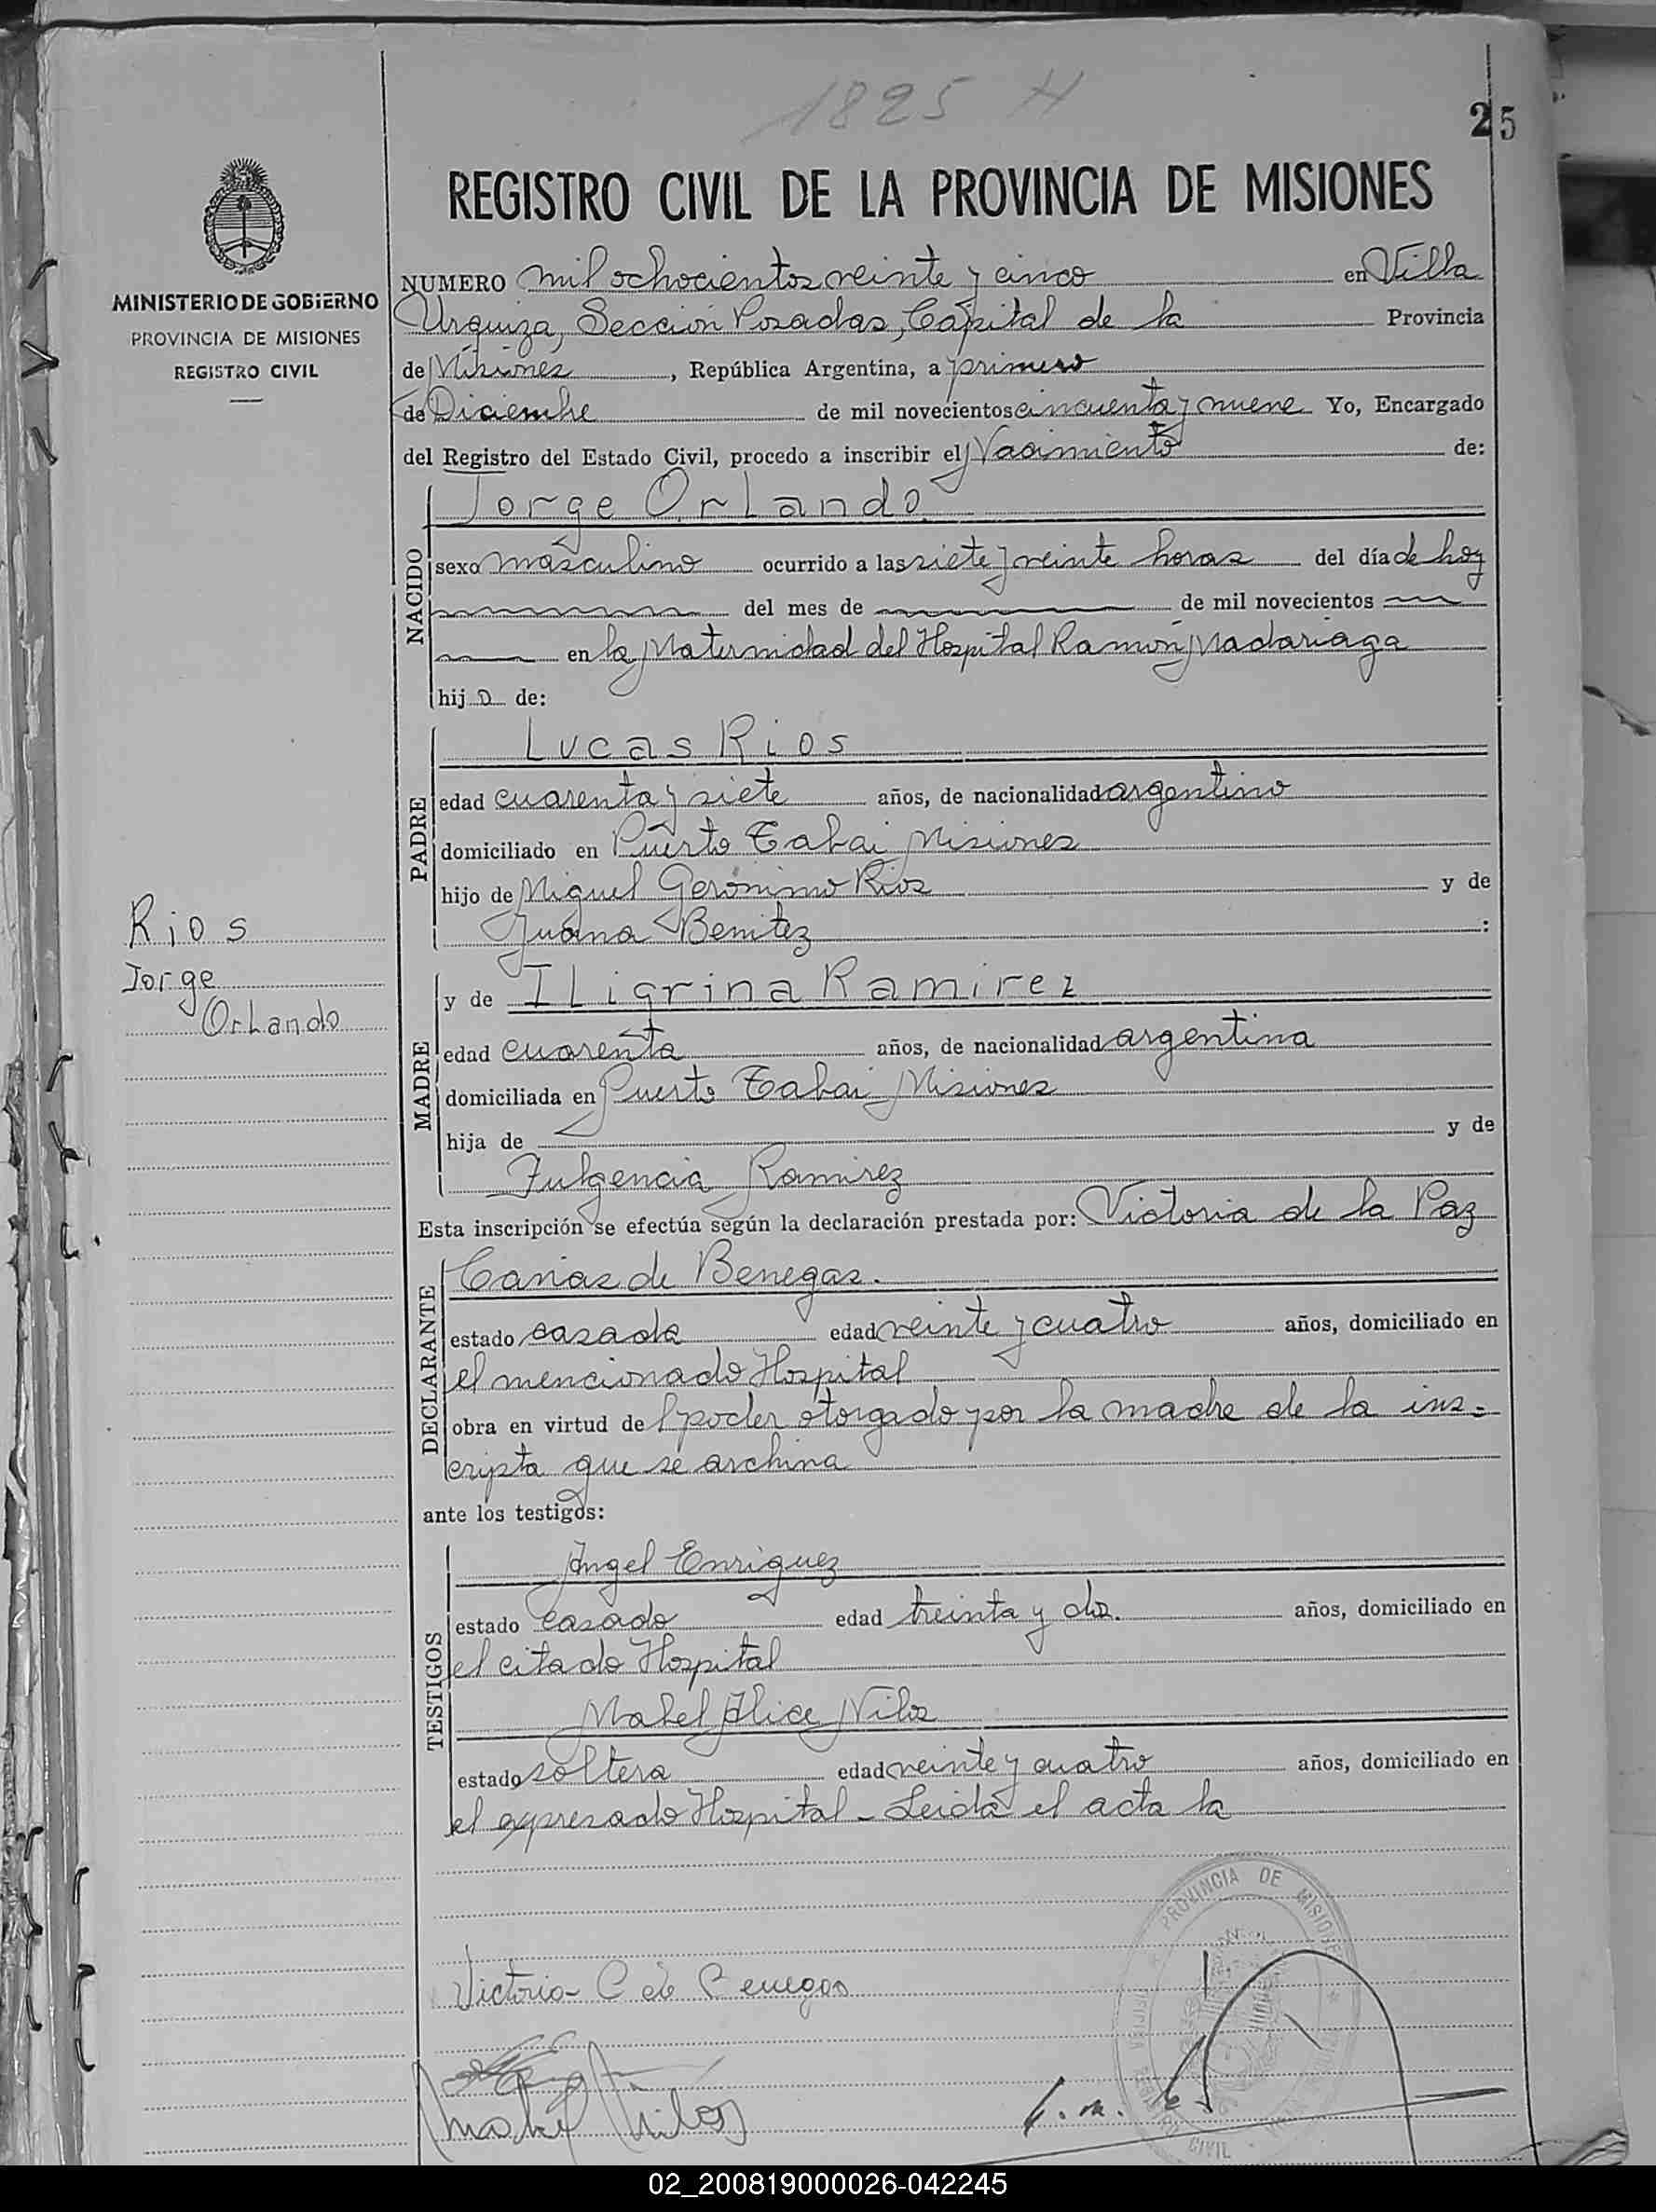 1825 H
25
REGISTRO CIVIL DE LA PROVINCIA DE MISIONES
MINISTERIO DE GOBIERNO
PROVINCIA DE MISIONES
REGISTRO CIVIL
NUMERO mil ochocientos veinte y cinco en Villa
Urquiza, Sección Posadas, Capital de la Provincia
de Misiones, República Argentina, a primero
de Diciembre de mil novecientos cincuenta y nueve Yo, Encargado
del Registro del Estado Civil, procedo a inscribir el Nacimiento de:
NACIDO
Jorge Orlando
sexo masculino ocurrido a las siete y veinte horas del día de hoy
del mes de de mil novecientos
en la Maternidad del Hospital Ramón Madariaga
hijo de:
PADRE
Lucas Rios
edad cuarenta y siete años, de nacionalidad argentino
domiciliado en Puerto Tabai Misiones
hijo de Miguel Gerónimo Rios y de
Juana Benitez :
Rios
Jorge
Orlando
MADRE
y de ILigrina Ramirez
edad cuarenta años, de nacionalidad argentina
domiciliada en Puerto Tabai Misiones
hija de y de
Fulgencia Ramirez
Esta inscripción se efectúa según la declaración prestada por: Victoria de la Paz
DECLARANTE
Cañas de Benegas.
estado casada edad veinte y cuatro años, domiciliado en
el mencionado Hospital
obra en virtud de poder otorgado por la madre de la ins-
cripta que se archiva
ante los testigos:
TESTIGOS
Angel Enriquez
estado casado edad treinta y dos. años, domiciliado en
el citado Hospital
Mabel Alice Vilos
estado soltera edad veinte y cuatro años, domiciliado en
el expresado Hospital - Leida el acta la
PROVINCIA DE MISIONES
CIVIL
Victoria C de Benegas
Mabel Vilos
02_200819000026-042245